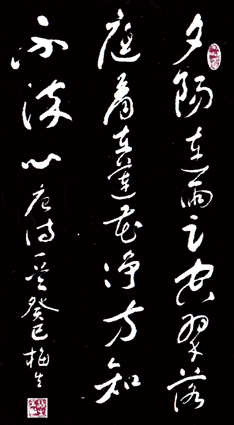 夕陽連雨足空翠落
庭看取蓮花淨方知
不染心 唐詩一首 癸巳梅生